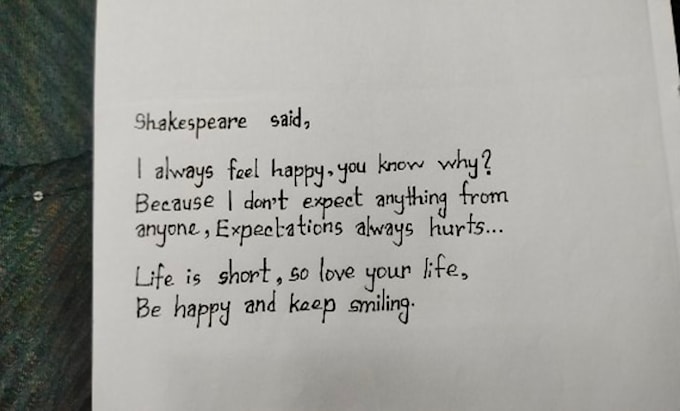 Shakespeare said,
I always feel happy, you know why?
Because I don't expect anything from
anyone, Expectations always hurts...
Life is short, so love your life,
Be happy and keep smiling.